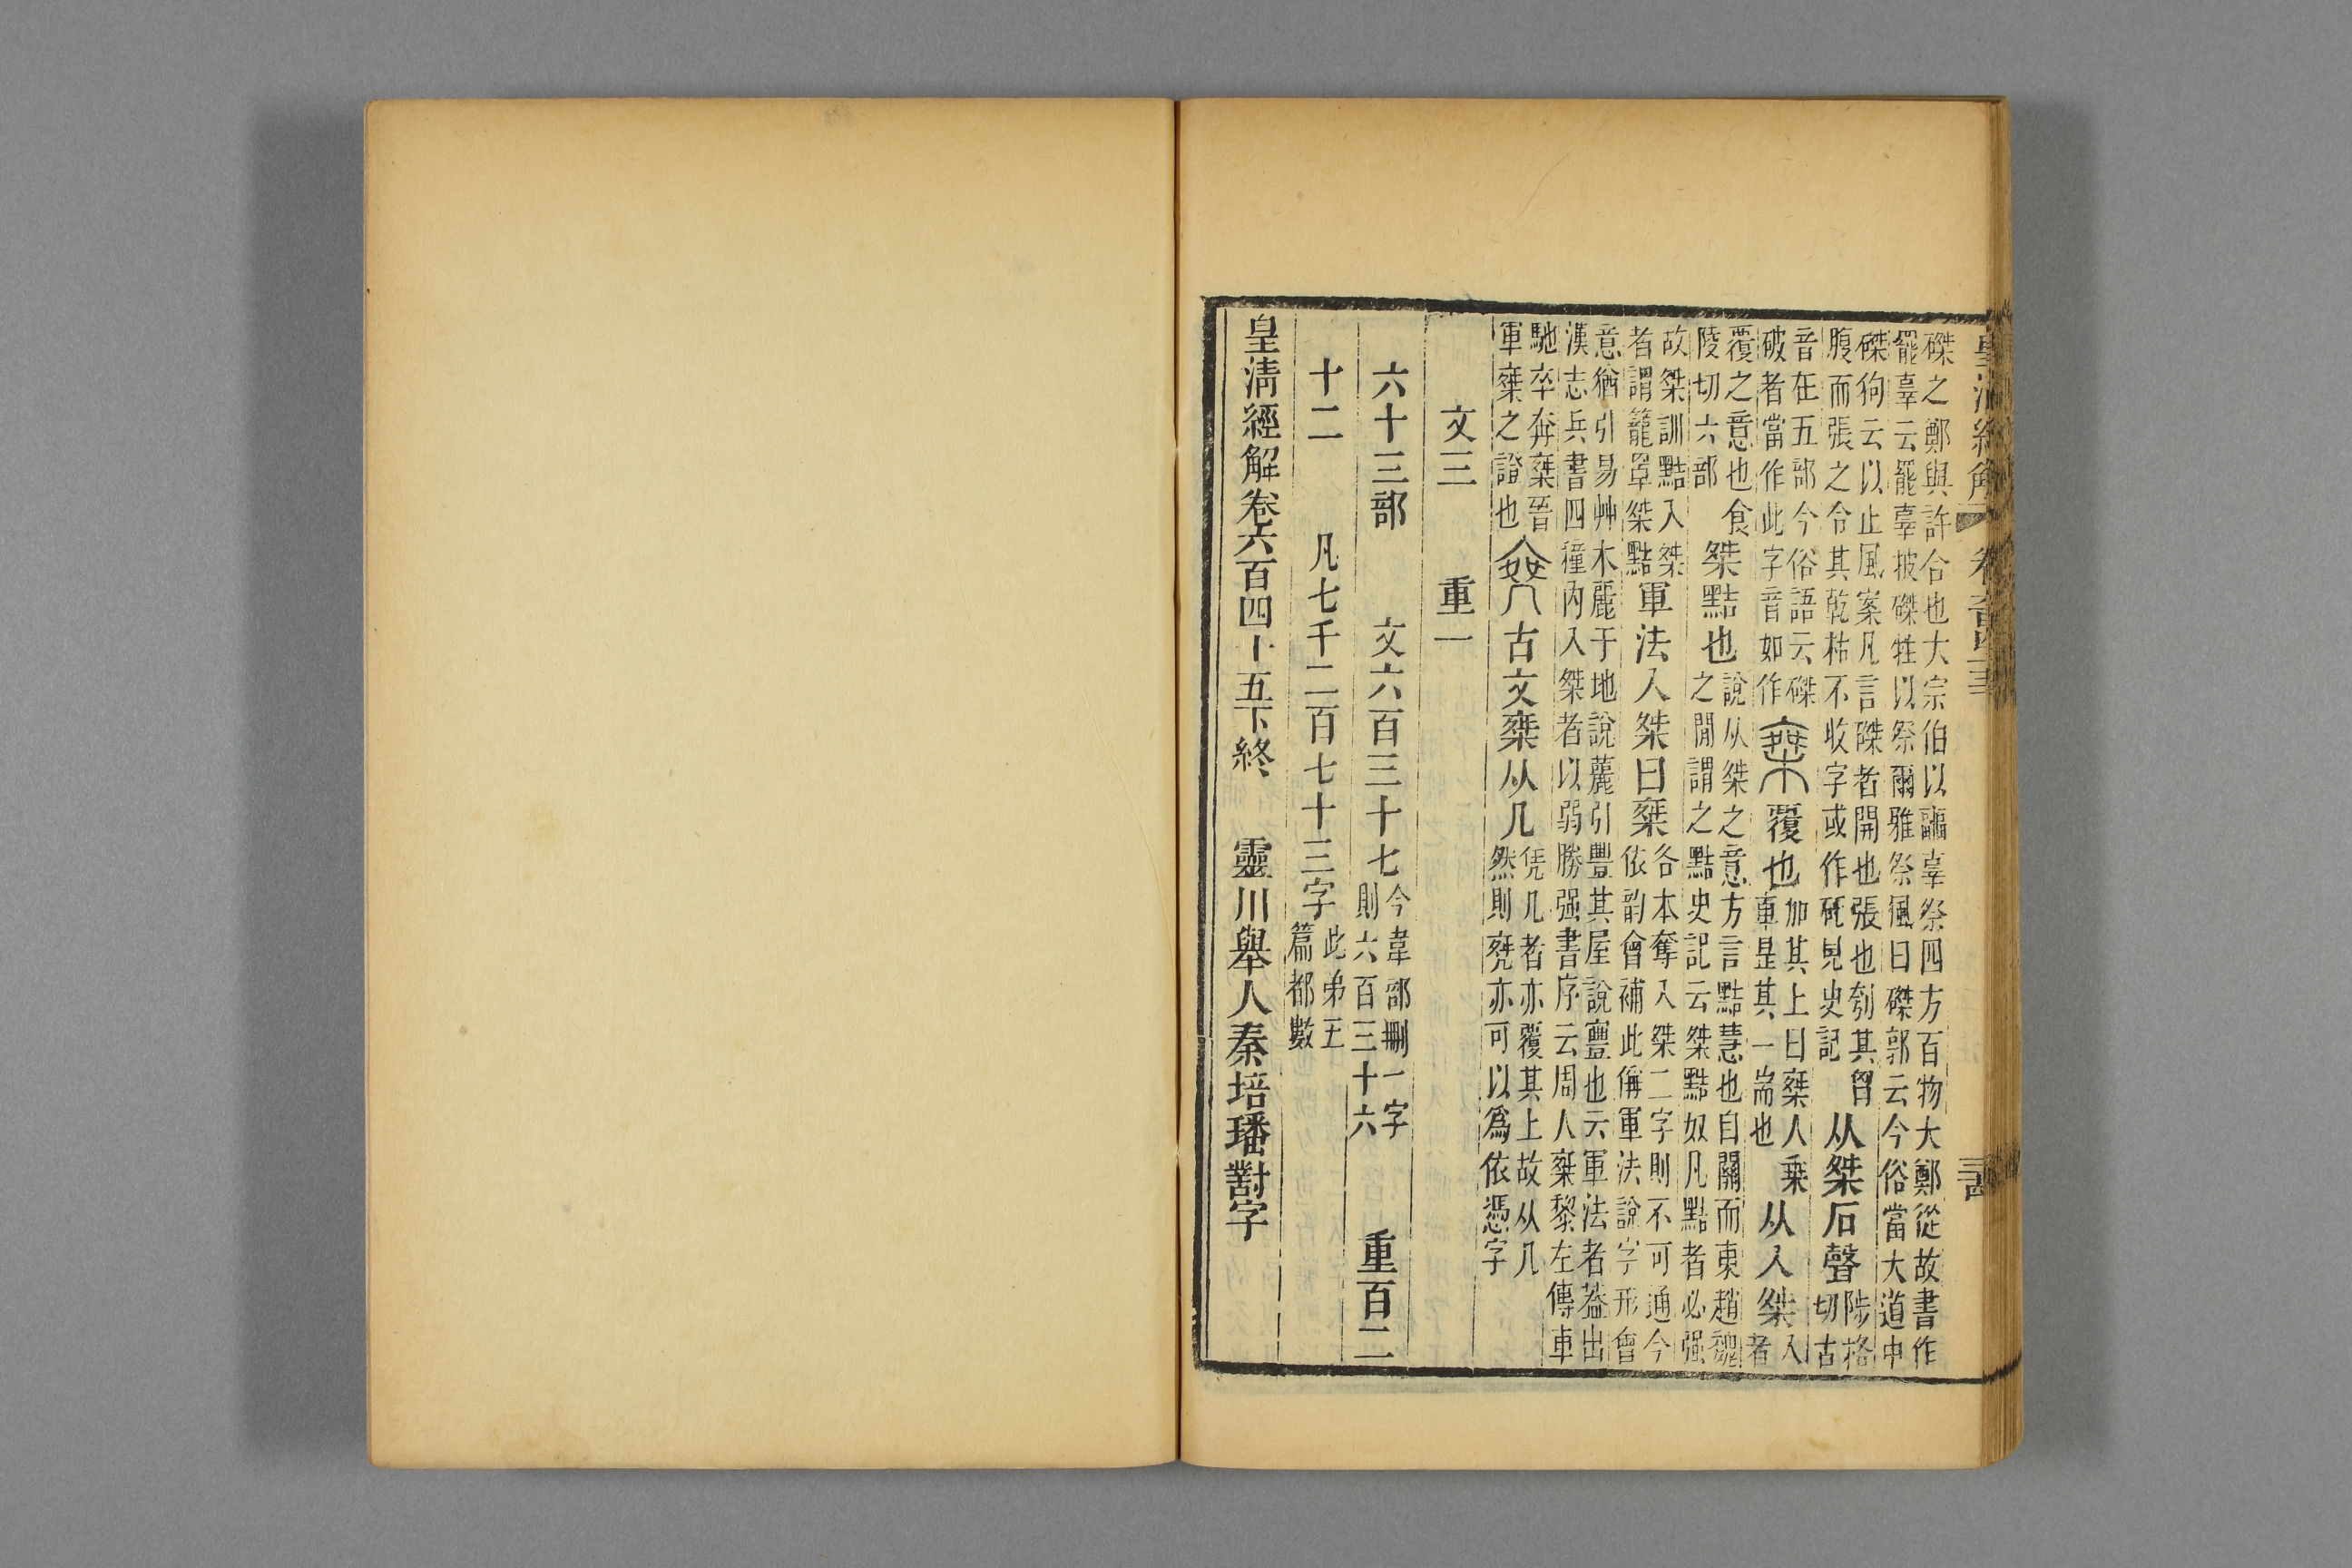 皇清經解
磔之鄭與許合也大宗伯以疈辜祭四方百物大鄭從故書作
罷辜云罷辜披磔牲以祭爾雅祭風曰磔郭云今俗當大道中
磔狗云以止風案凡言磔者開也張也刳其胷
腹而張之令其乾枯不收字或作矺見史記
从桀石聲
陟格
切古
音在五部今俗語云磔
破者當作此字音如作
椉
覆也
加其上曰椉人乗
車是其一耑也
从入桀
入
者
覆之意也食
陵切六部
桀黠也
說从桀之意方言黠慧也自關而東趙魏
之閒謂之黠史記云桀黠奴凡黠者必强
故桀訓黠入桀
者謂籠罩桀黠
軍法入桀曰椉
各本奪入桀二字則不可通今
依韵會補此偁軍法說字形會
意猶引易艸木麗于地說䕻引豐其屋說寷也云軍法者葢出
漢志兵書四種內入桀者以弱勝强書序云周人椉黎左傳車
馳卒奔椉晉
軍椉之證也
古文椉从几
凭几者亦覆其上故从几
然則凳亦可以爲依憑字
文三　重一
六十三部　文六百三十七
今韋部刪一字
則六百三十六
重百二
十二　凡七千二百七十三字
此弟五
篇都數
皇清經解卷六百四十五下終　靈川舉人秦培璠對字